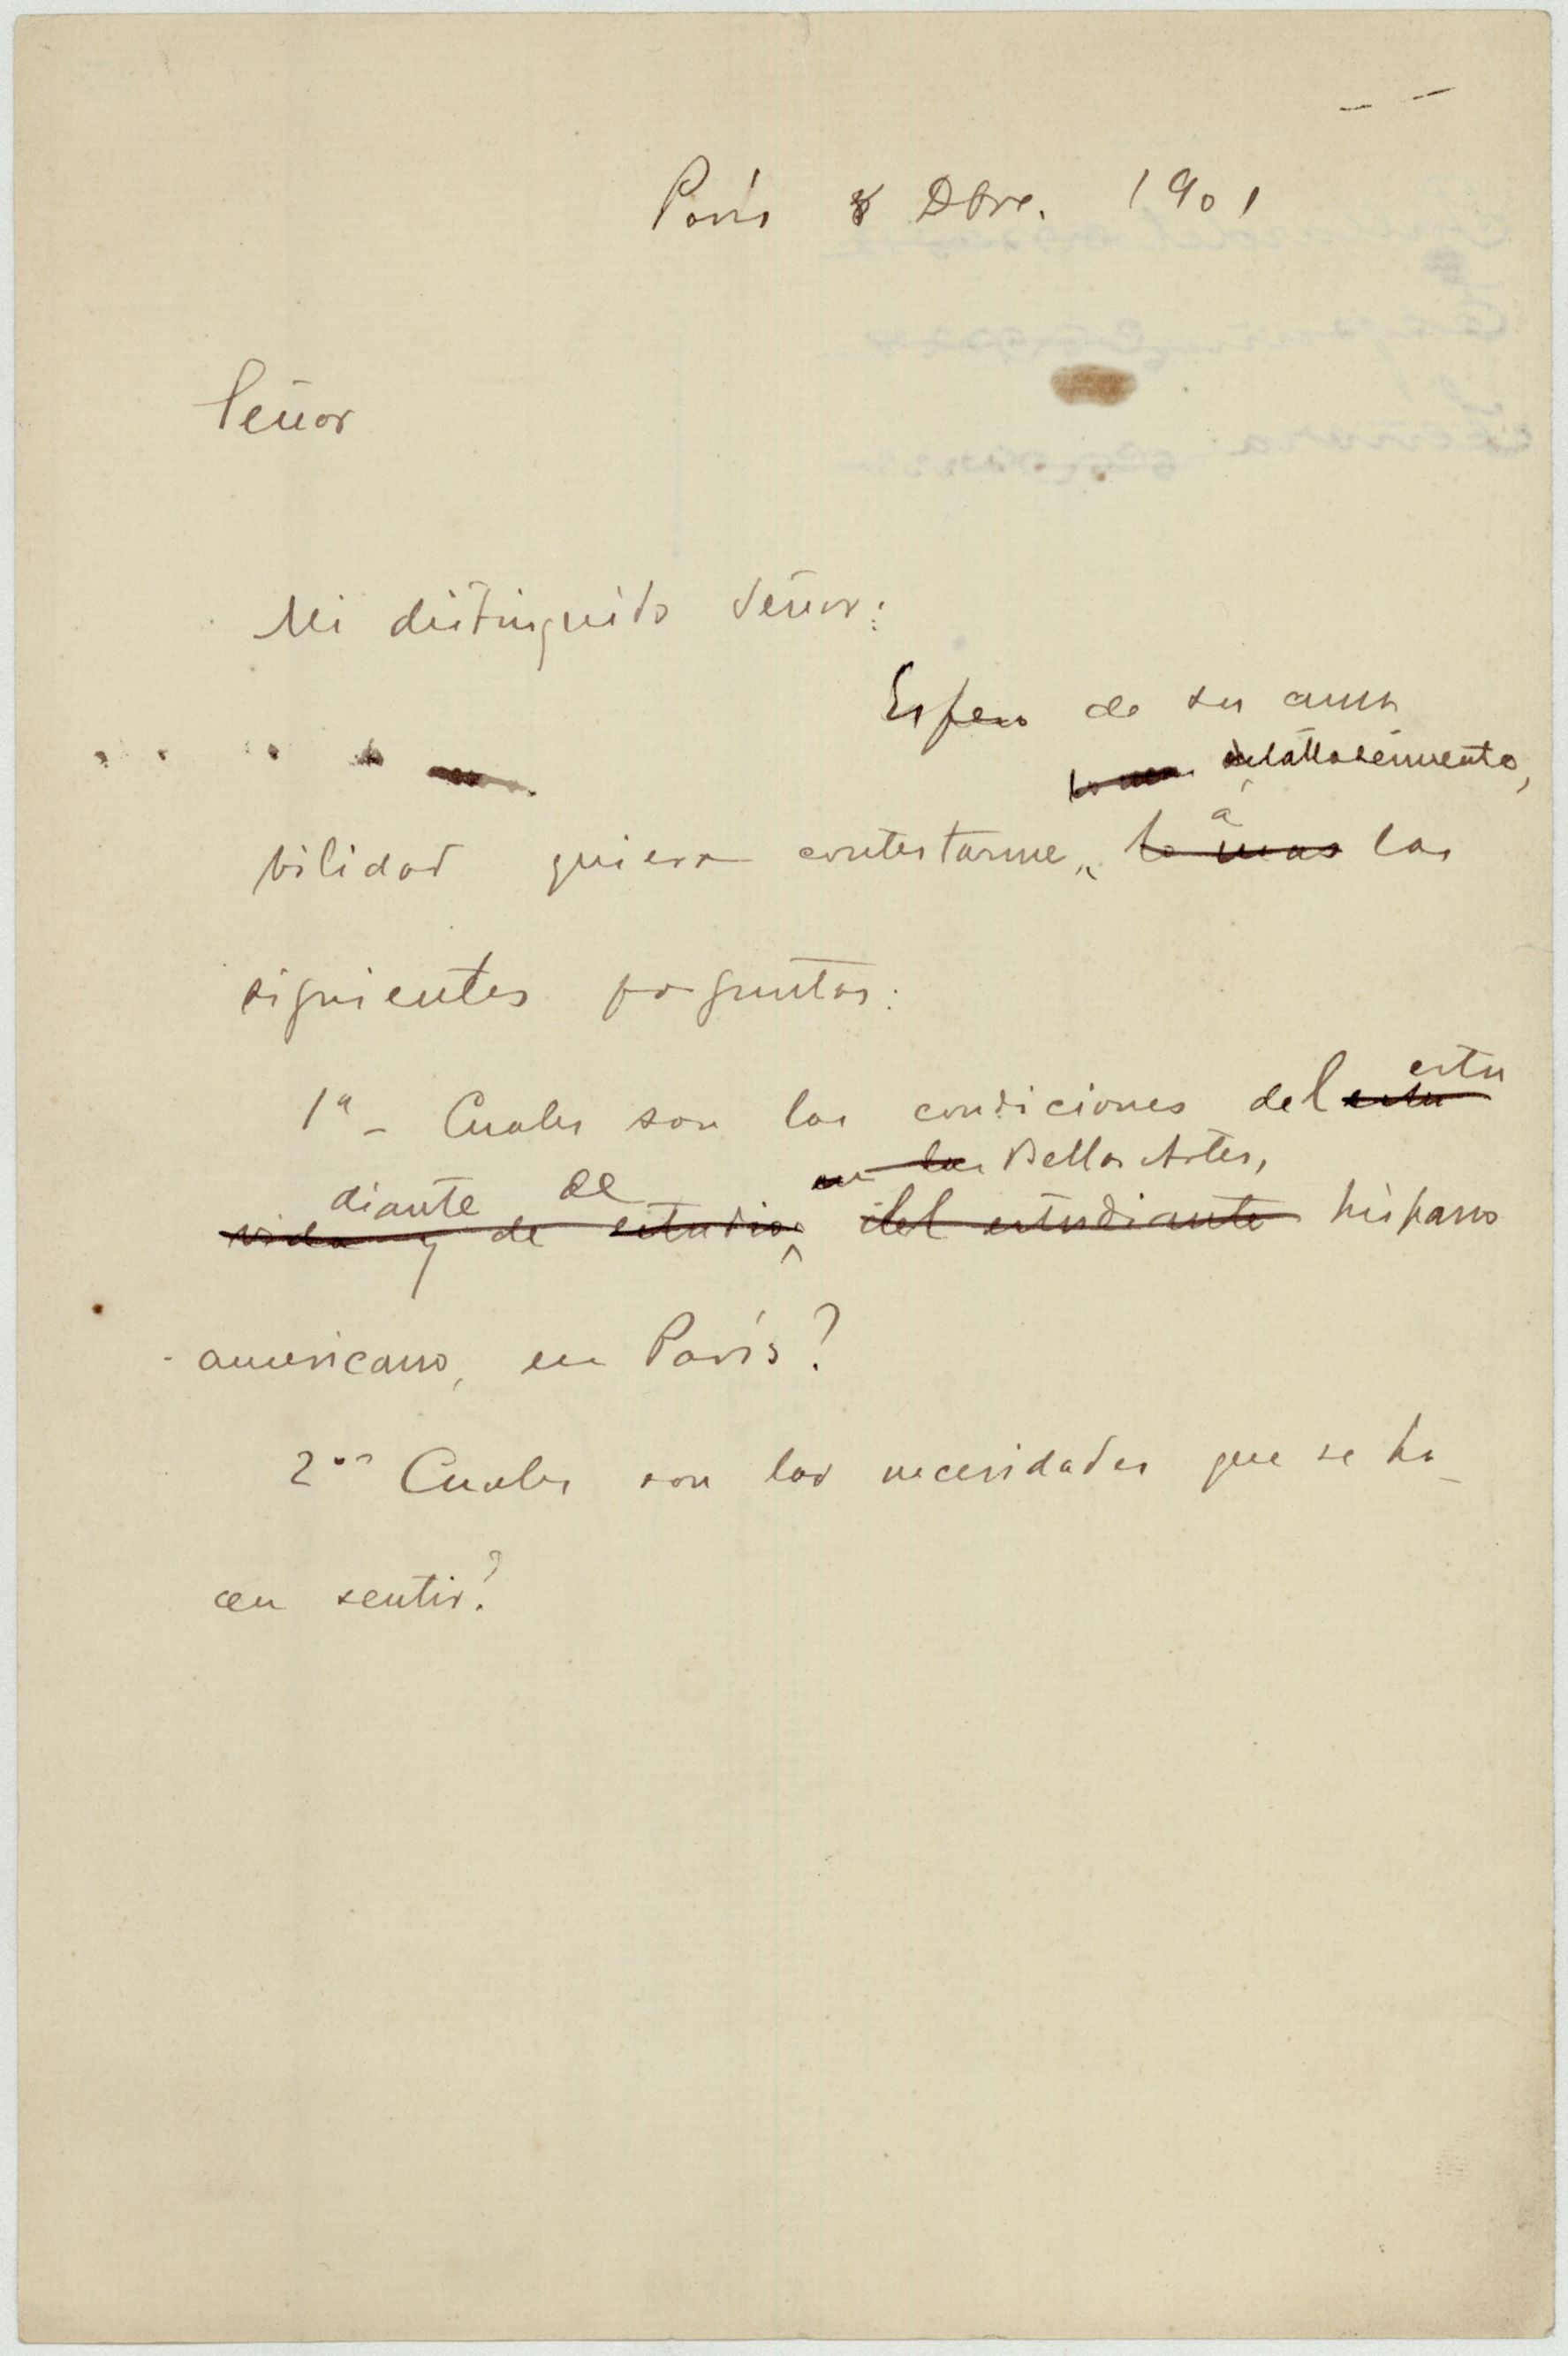 París 8 Dbre. 1901
Señor
Mi distinguido Señor:
Espero de su ama
bilidad quiera contestarme, á las
siguientes preguntas:
1ª - Cuales son las condiciones del estu
diante de Bellas Artes, hispano
americano, en París?
2ª Cuales son las necesidades que se ha-
cen sentir?